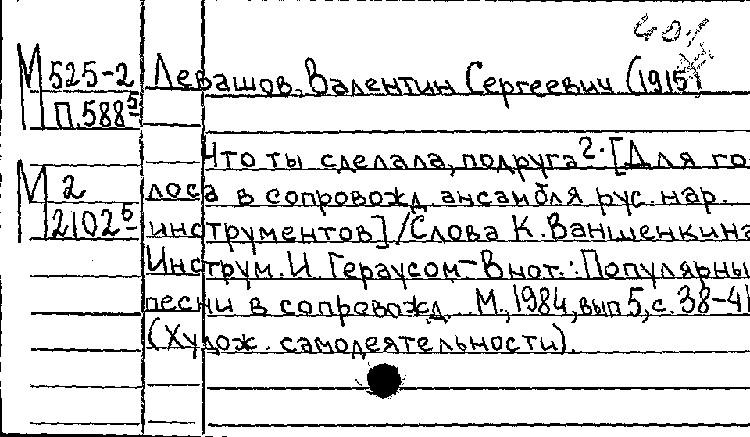 40.
М 525-2 Левашов, Валентин Сергеевич (1915)
П.588⁵
Что ты сделала, подруга?. [Для го
М 2 лоса в сопровожд. ансамбля рус. нар.
2102⁶ инструментов] / Слова К. Ваншенкина
Инструм. И. Гераусом – В нот.: Популярны
песни в сопровожд... М., 1984, вып 5, с. 38-41
(Худож. самодеятельности).